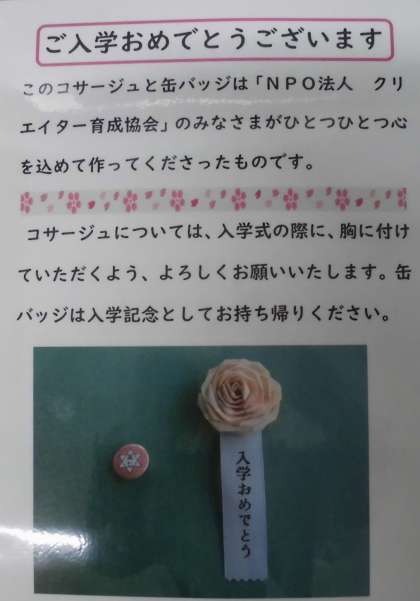 ご入学おめでとうございます
このコサージュと缶バッジは「ＮＰＯ法人　クリ
エイター育成協会」のみなさまがひとつひとつ心
を込めて作ってくださったものです。
コサージュについては、入学式の際に、胸に付け
ていただくよう、よろしくお願いいたします。缶
バッジは入学記念としてお持ち帰りください。
入学おめでとう